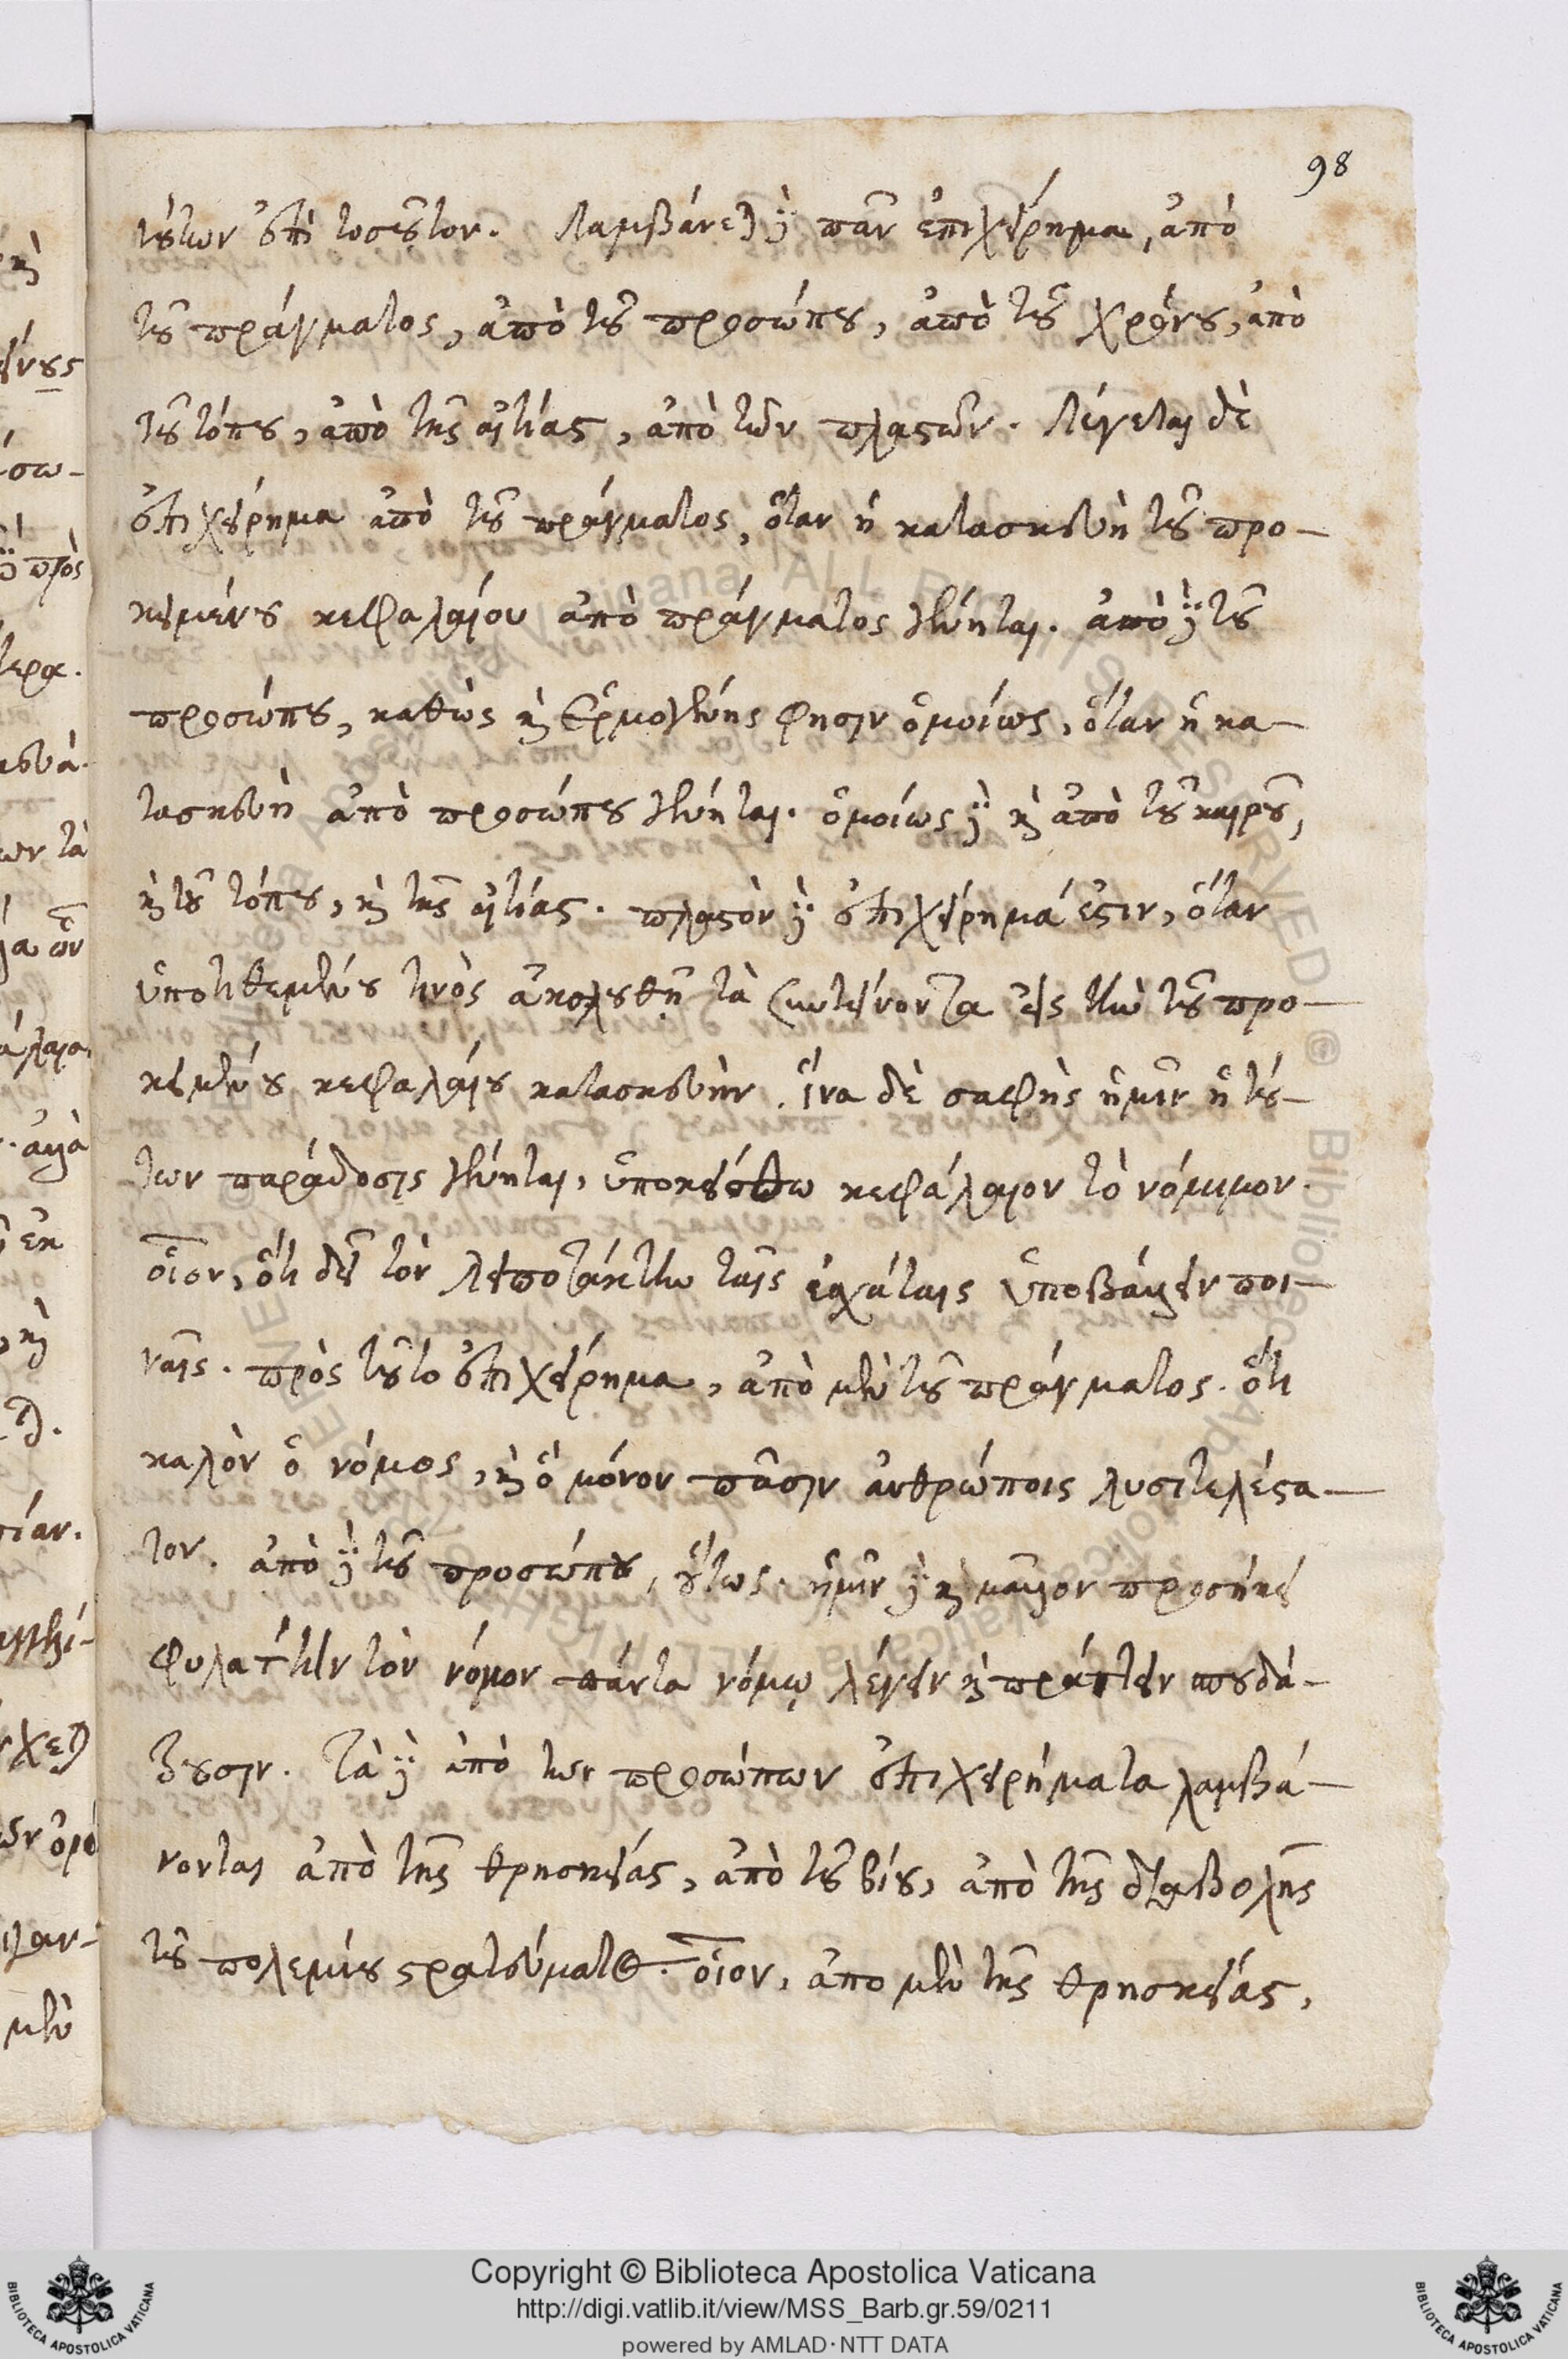 98
τούτων ἐπὶ τοσοῦτον. Λαμβάνεται δὲ πᾶν ἐπιχείρημα, ἀπὸ
τοῦ πράγματος, ἀπὸ τοῦ προσώπου, ἀπὸ τοῦ χρόνου, ἀπὸ
τοῦ τόπου, ἀπὸ τῆς αἰτίας, ἀπὸ τῶν πλαστῶν. Λέγεται δὲ
ἐπιχείρημα ἀπὸ τοῦ πράγματος, ὅταν ἡ κατασκευὴ τοῦ προ–
κειμένου κεφαλαίου ἀπὸ πράγματος γένηται. ἀπὸ δὲ τοῦ
προσώπου, καθὼς καὶ Ἑρμογένης φησιν ὁμοίως, ὅταν ἡ κα–
τασκευὴ ἀπὸ προσώπου γένηται. ὁμοίως δὲ καὶ ἀπὸ τοῦ καιροῦ,
καὶ τοῦ τόπου, καὶ τῆς αἰτίας. πλαστὸν δὲ ἐπιχείρημά ἐστιν, ὅταν
ὑποτιθεμένου τινὸς ἀκολουθῇ τὰ συντείνοντα εἰς τὴν τοῦ προ–
κειμένου κεφαλαίου κατασκευήν. ἵνα δὲ σαφὴς ἡμῖν ἡ τού–
των παράδοσις γένηται, ὑποκείσθω κεφάλαιον τὸ νόμιμον.
οἷον, ὅτι δεῖ τὸν λειποτάκτην ταῖς ἐσχάταις ὑποβάλλειν ποι–
ναῖς. πρὸς τοῦτο ἐπιχείρημα, ἀπὸ μὲν τοῦ πράγματος. ὅτι
καλὸν ὁ νόμος, καὶ ὃ μόνον πᾶσιν ἀνθρώποις λυσιτελέστα–
τον. ἀπὸ δὲ τοῦ προσώπου, οὕτως. ἡμῖν δὲ καὶ μᾶλλον προσήκει
φυλάττειν τὸν νόμον πάντα νόμῳ λέγειν καὶ πράττειν σπουδά–
ζουσιν. Τὰ δὲ ἀπὸ των προσώπων ἐπιχειρήματα λαμβά–
νονται ἀπὸ τῆς θρησκείας, ἀπὸ τοῦ βίου, ἀπὸ τῆς διαβολῆς
τοῦ πολεμίου στρατεύματος. οἷον, ἀπο μὲν τῆς θρησκείας,
Copyright © Biblioteca Apostolica Vaticana
http://digi.vatlib.it/view/MSS_Barb.gr.59/0211
powered by AMLAD·NTT DATA